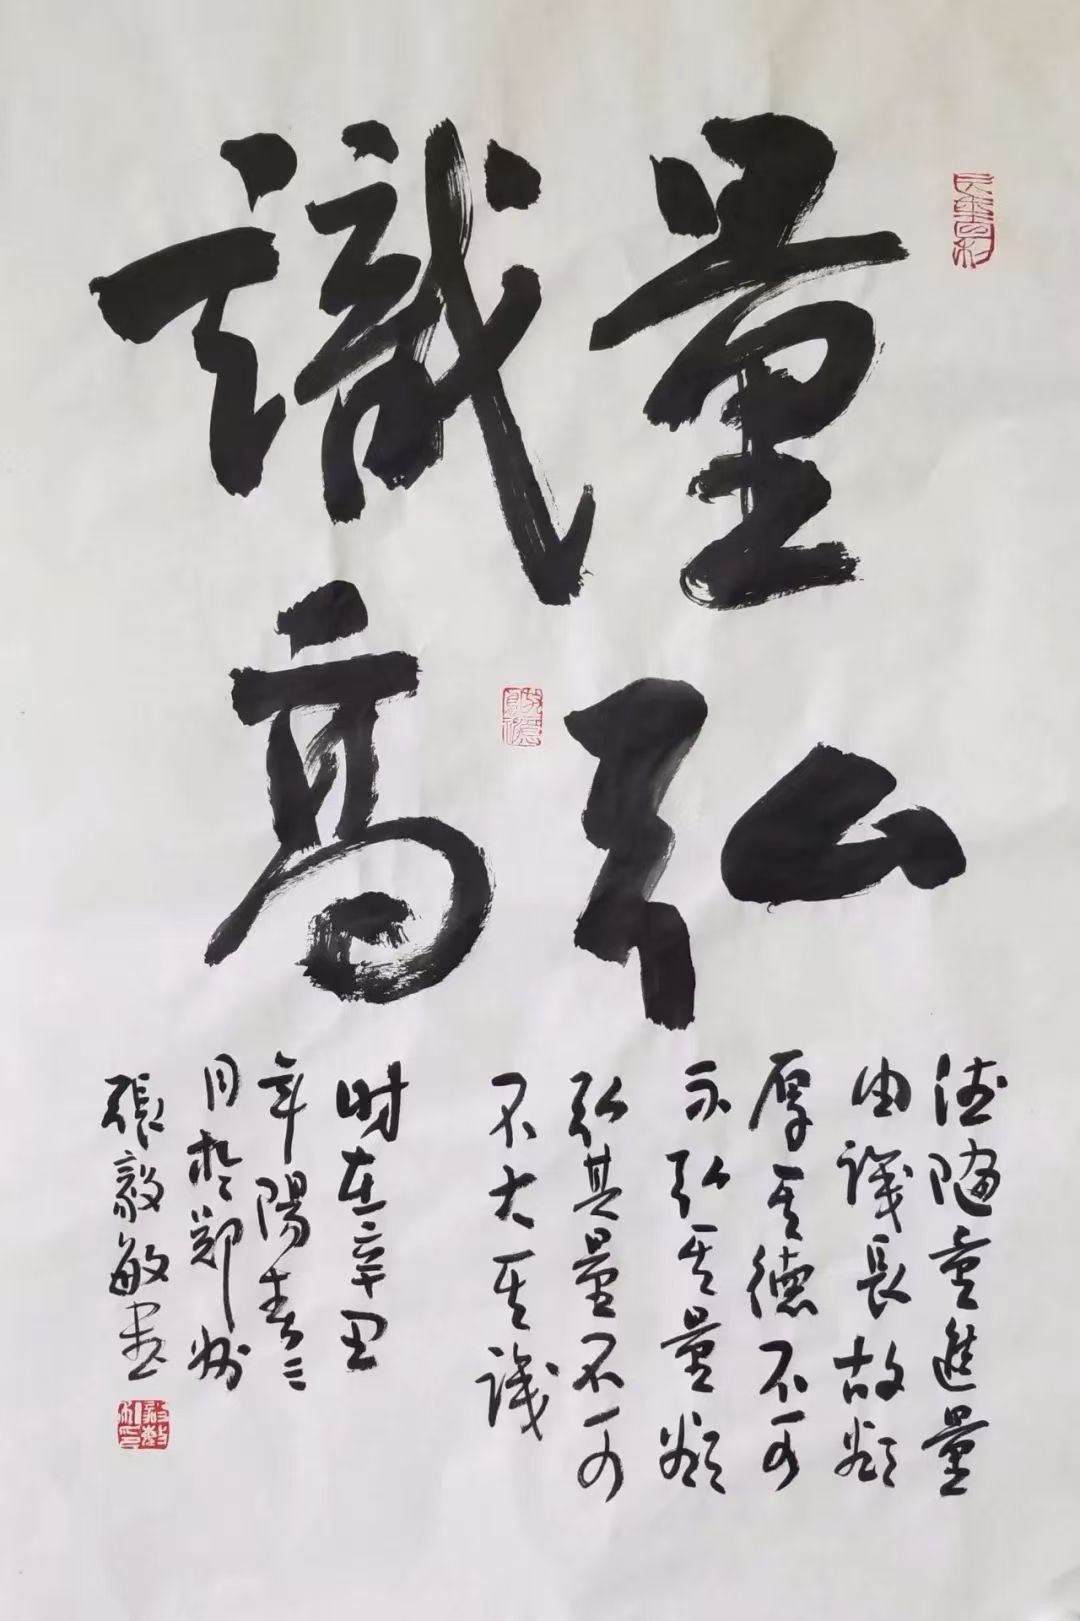 量弘
識高
德隨量進量
由識長故欲
厚其德不可
不弘其量欲
弘其量不可
不大其識
时在辛丑
年陽春三
月於鄭州
張毅敏書